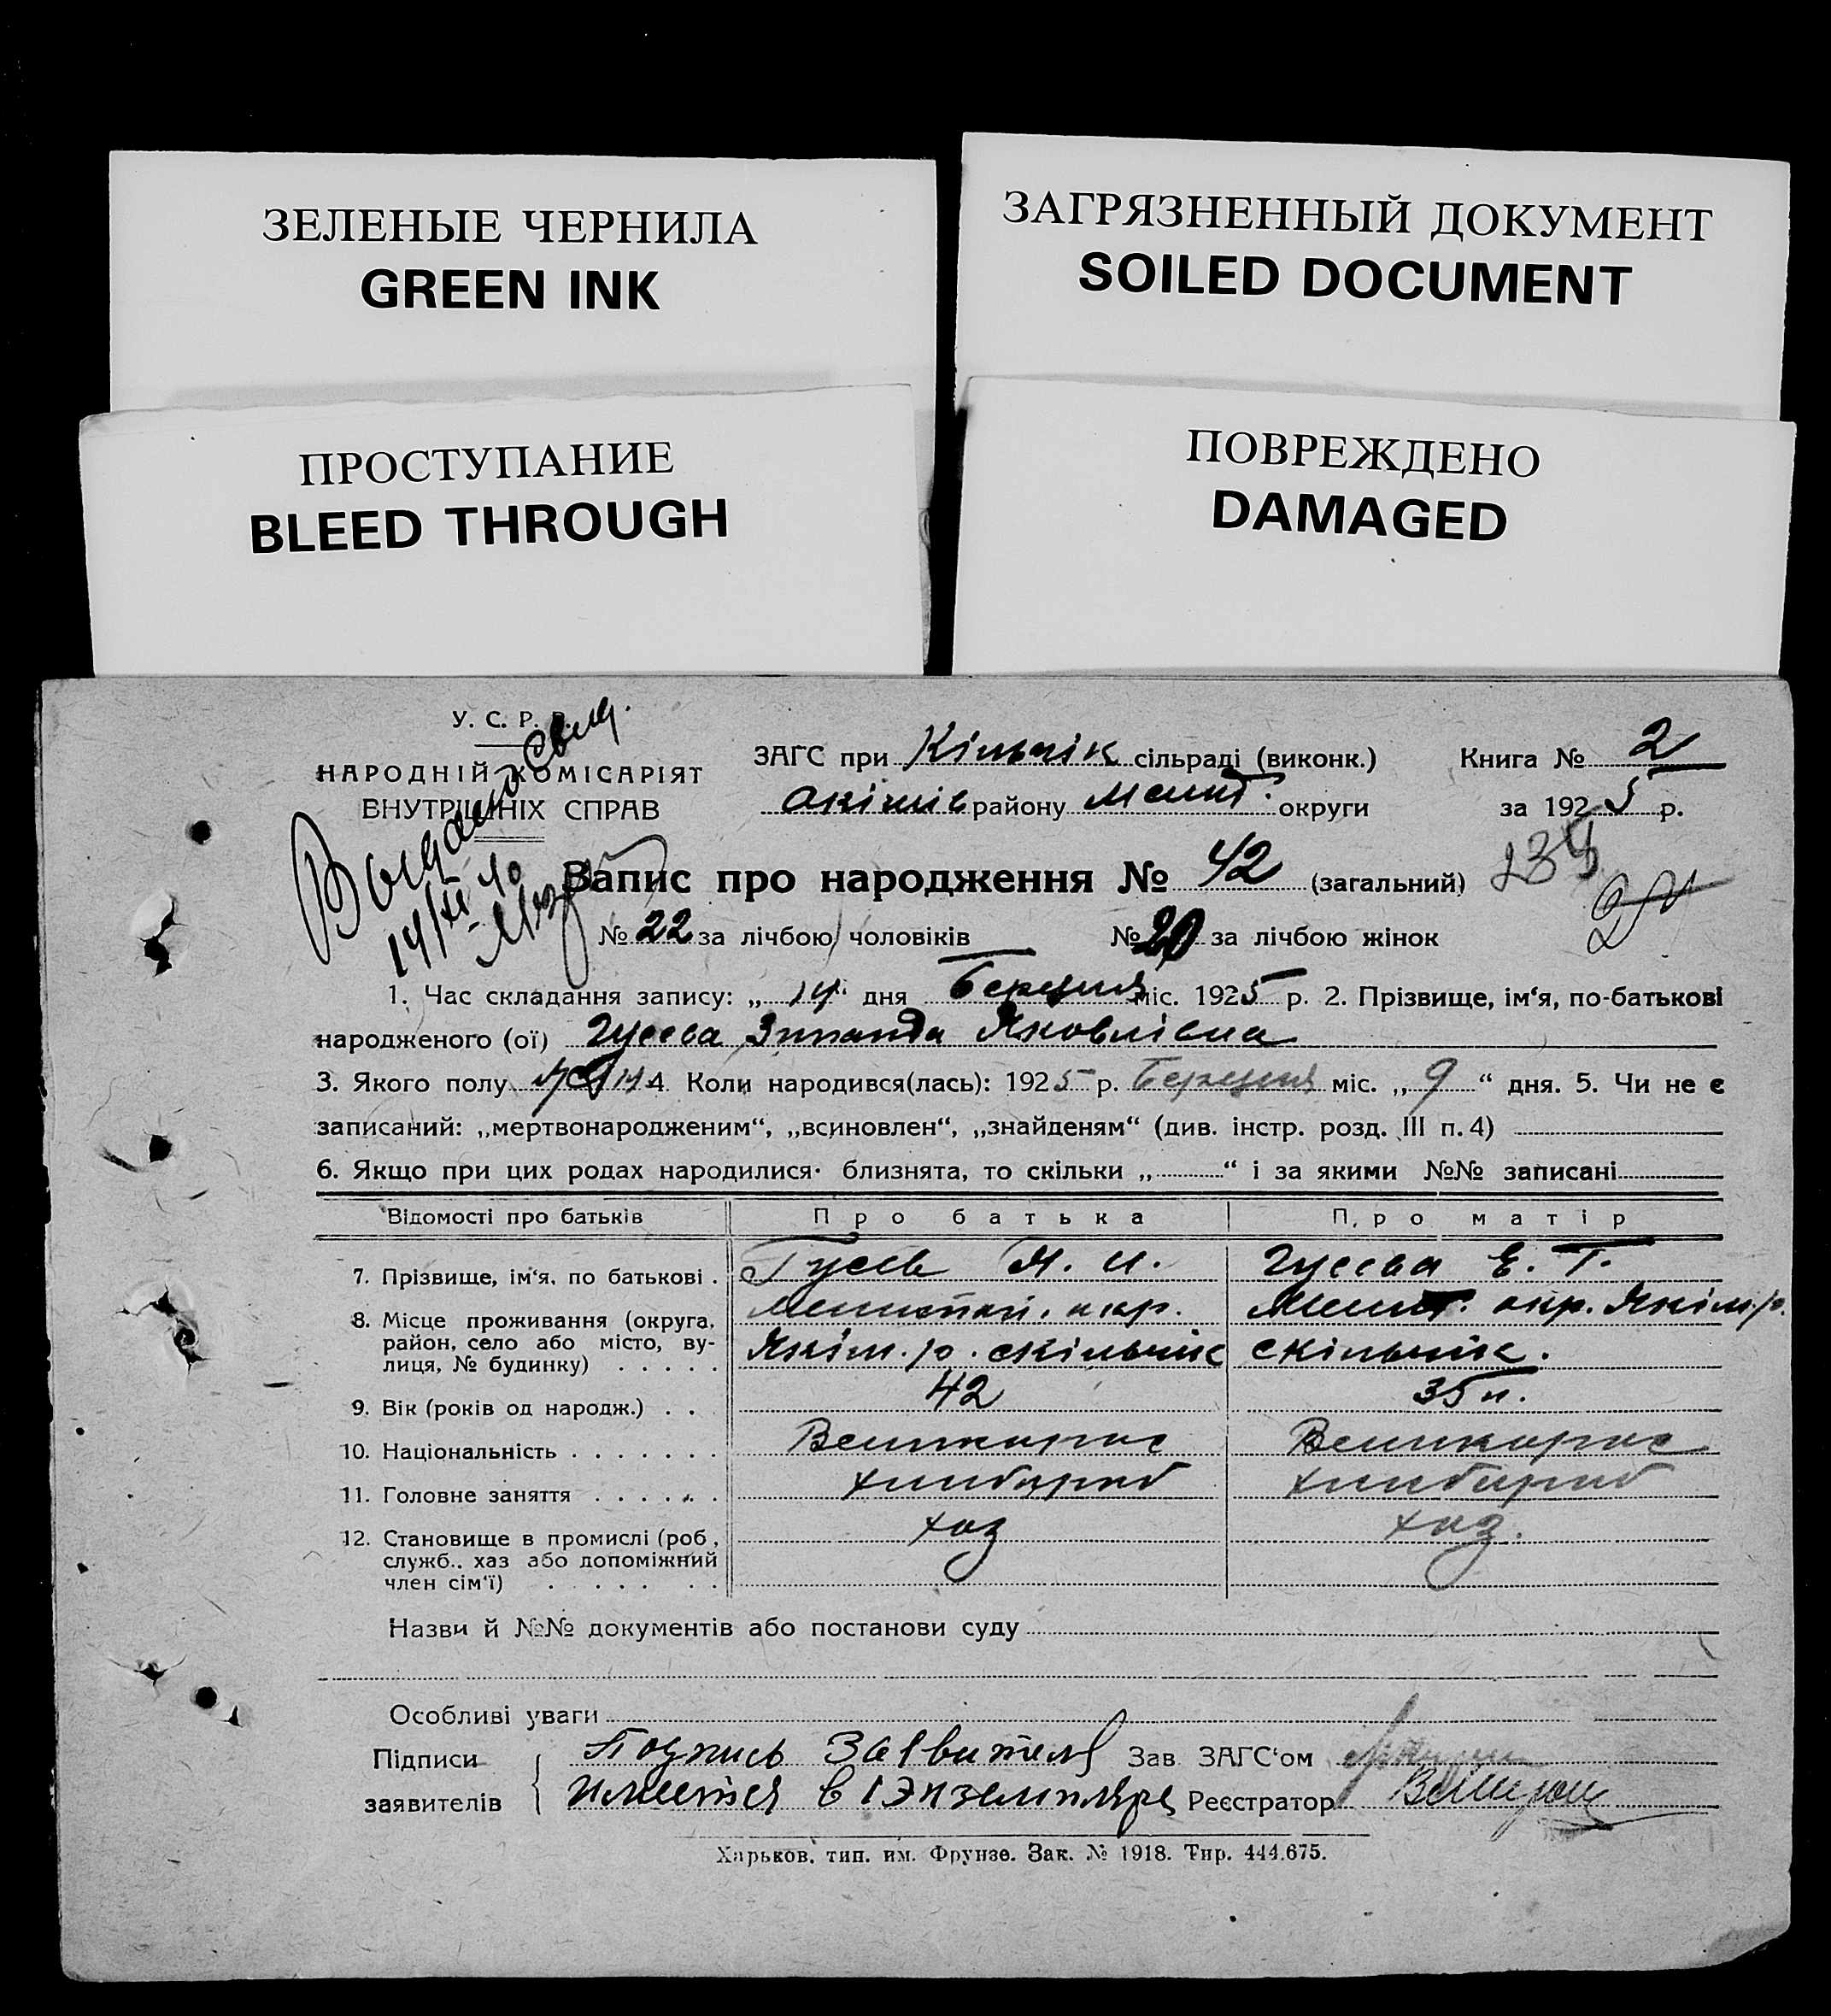 ЗЕЛЕНЫЕ ЧЕРНИЛА
GREEN INK
ЗАГРЯЗНЕННЫЙ ДОКУМЕНТ
SOILED DOCUMENT
ПРОСТУПАНИЕ
BLEED THROUGH
ПОВРЕЖДЕНО
DAMAGED
У. С. Р. Р.
НАРОДНІЙ КОМІСАРІЯТ
ВНУТРІШНІХ СПРАВ
ЗАГС при Кільчік сільраді (виконк.)
Акімів району Меліт. округи
Книга № 2
за 1925 р.
Запис про народження № 42 (загальний)
№ 22 за лічбою чоловіків № 20 за лічбою жінок
1. Час складання запису: „14“ дня Березня міс. 1925 р. 2. Прізвище, ім‘я, по-батькові
народженого (ої) Гусева Зинаида Яковлівна
3. Якого полу жін 4. Коли народився(лась): 1925 р. Березня міс. „9“ дня. 5. Чи не є
записаний: „мертвонародженим“, „всиновлен“, „знайденям“ (див. інстр. розд. III п. 4)
6. Якщо при цих родах народилися близнята, то скільки „ “ і за якими №№ записані
Відомості про батьків Про батька Про матір
7. Прізвище, ім‘я, по батькові . Гусев Я. И. Гусева Е. Г.
8. Місце проживання (округа, район, село або місто, вулиця, № будинку) . . . . .
Мелитоп. окр. Якім. р. с Кільчік
Меліт. окр. Якім. р. с Кільчік.
9. Вік (років од народж.) . . 42 35 л.
10. Національність . . . . . . . Великорос Великорос
11. Головне заняття . . . . . . хлибороб хлибороб
12. Становище в промислі (роб, служб., хаз або допоміжний член сім‘ї) . . . . . . хаз хаз.
Назви й №№ документів або постанови суду
Особливі уваги
Підписи заявителів
Подпись Заявителя
Имеется в 1 Экземпляре
Зав ЗАГС‘ом
Реєстратор
Харьков, тип. им. Фрунзе. Зак. № 1918. Тир. 444.675.